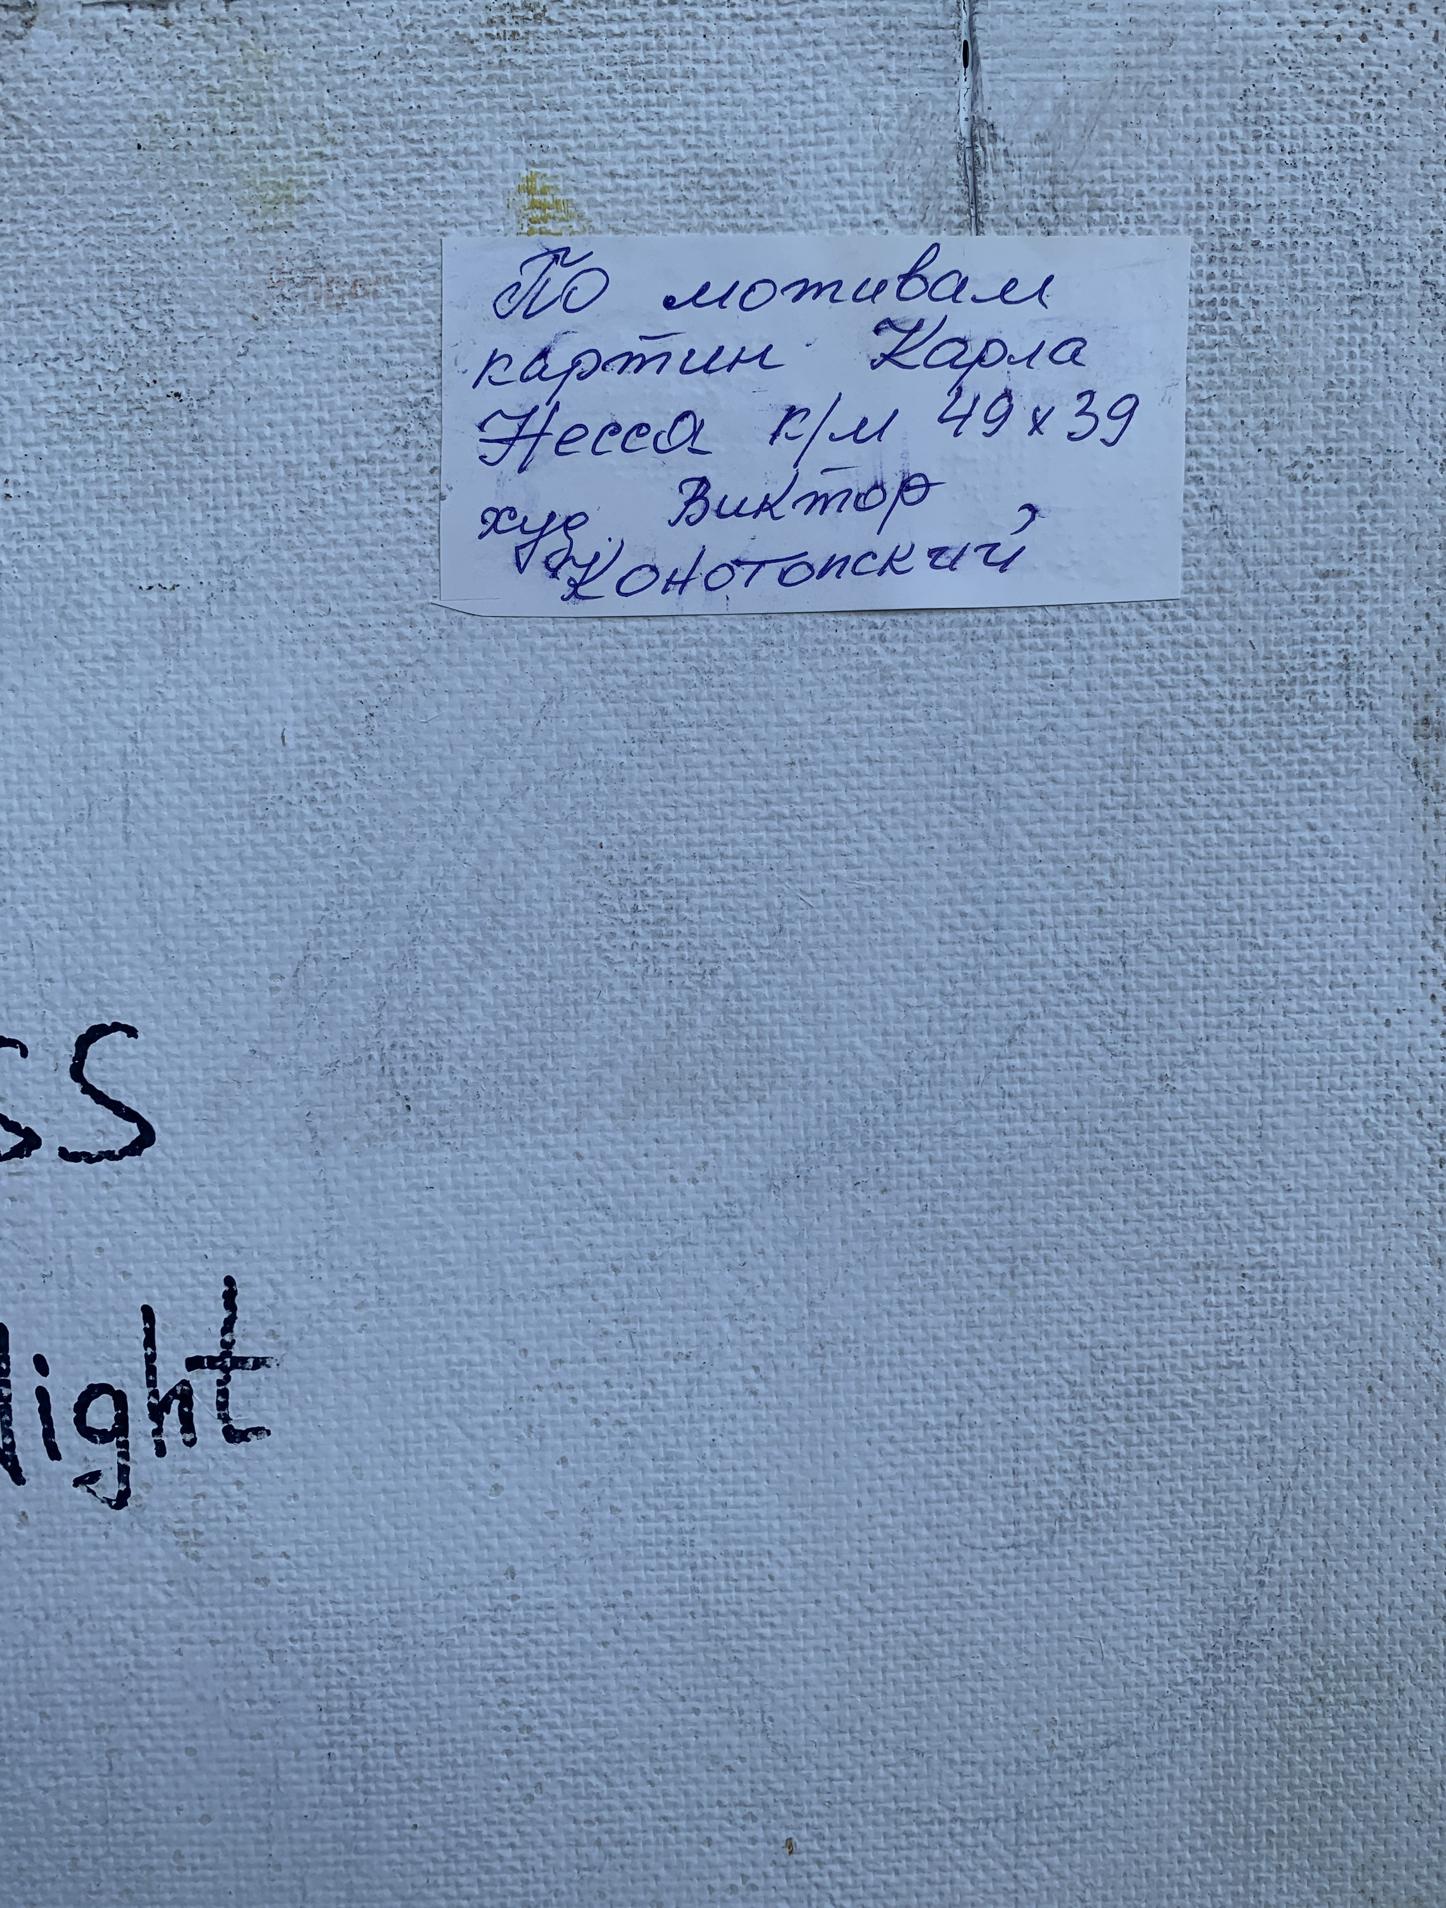 По мотивам
картин Карла
Несса к/м 49х39
худ Виктор
Конотопский
ss
light